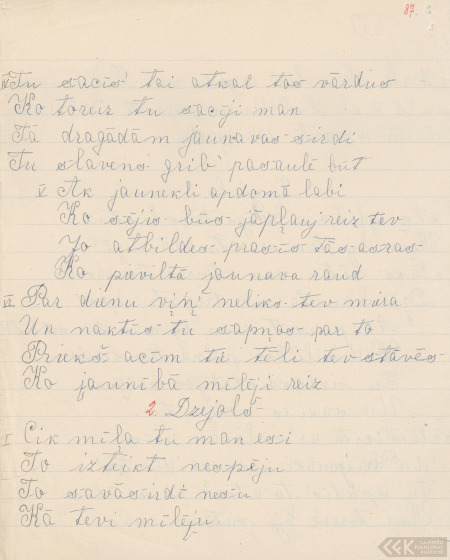 87.
IV Tu sacīs' tai atkal tos vārdus
Ko toreiz tu sacīji man
Tā dragādām jaunavas sirdi
Tu slavens grib' pasaulē būt
V Ak jaunekli apdomā labi
Ko sējis būs jāpļauj reiz tev
Jo atbildes prasīs tās asras
Ko pievilta jaunava raud
VI Par dienu viņ' neliks tev miera
Un naktīs tu sapņos par to
Priekš acīm tā tēli tev stāvēs
Ko jaunībā mīlēji reiz
2. Dzejols
I Cik mīļa tu man esi
To izteikt nespēju
To savā sirdī nesu
Kā tevi mīlēju